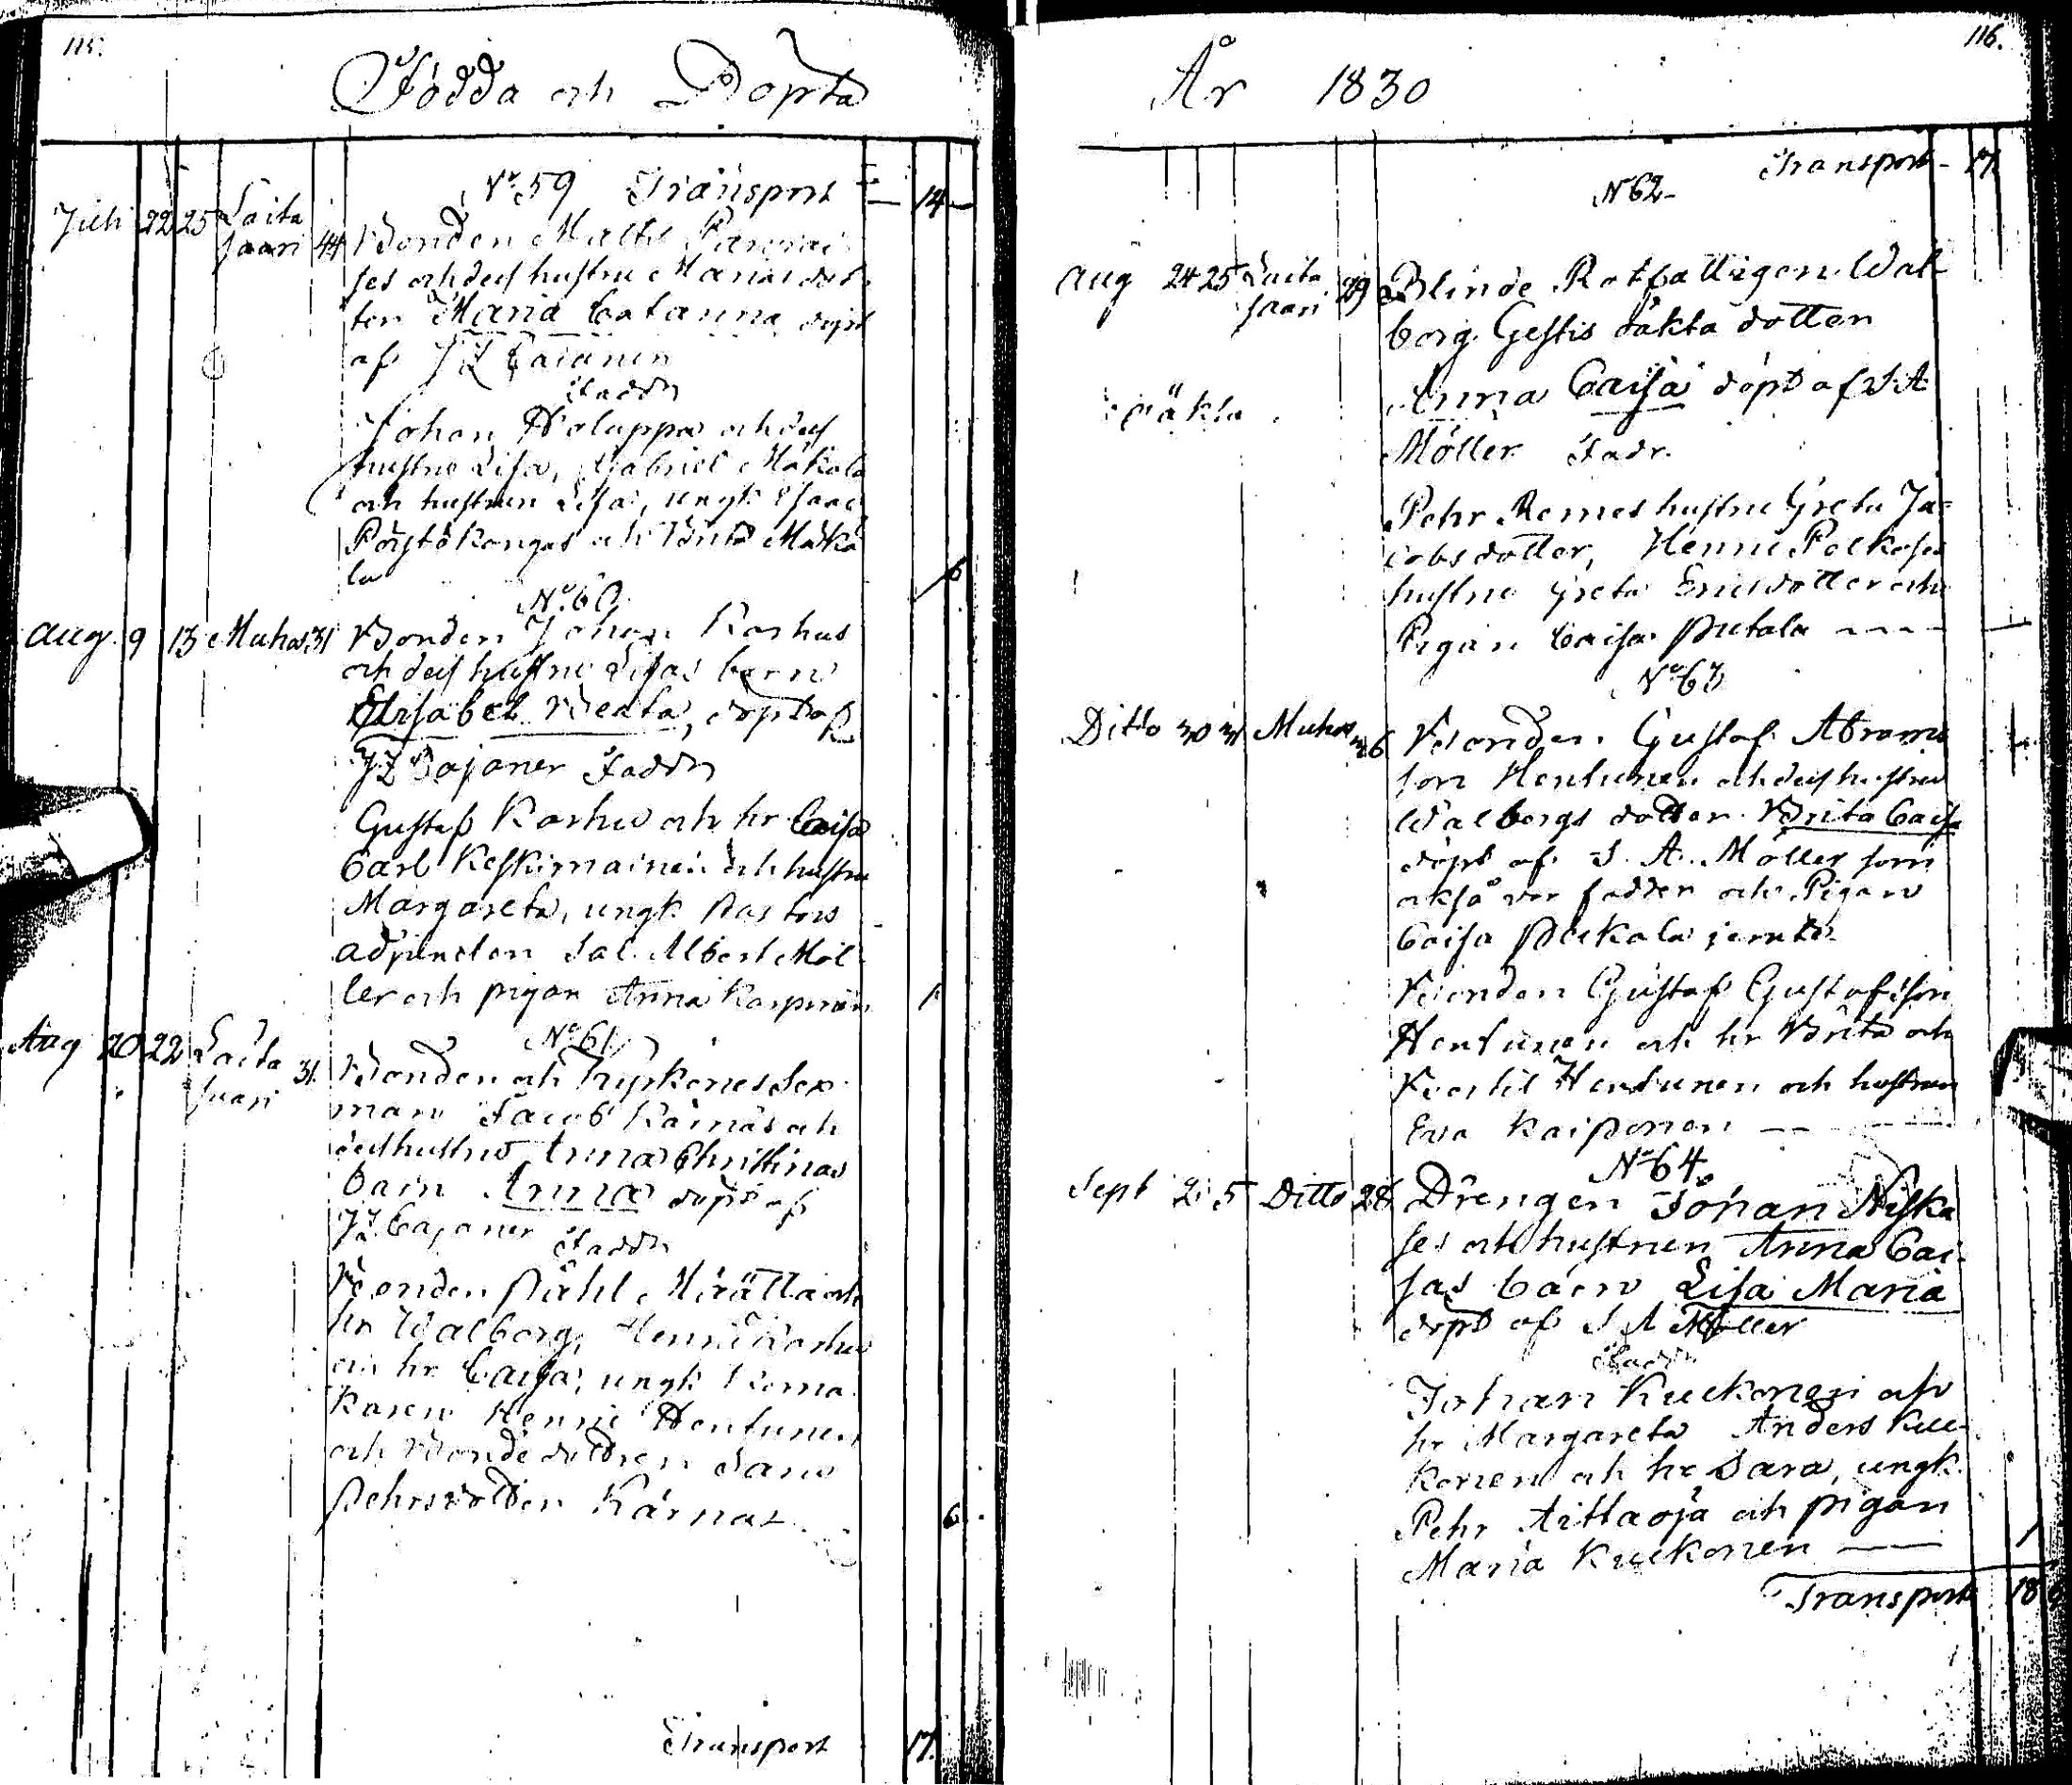 115.
Födda och Döpta
No 59 Transport 14
Juli 22 25 Laita
saari 44 Bonden Matts
ses och dess hustru Marias dot
ter Maria Catarina döpt
af J Z Cajanen
Faddr
Johan Haluppa och dess
hustru Lisa, Gabriel Mäkelä
och hustrun Lisa, ungk Isaac
och Brita Mäke
la 6
No 60
Aug. 9 13 Muhos 31 Bonden Johan Karhus
och dess hustru Lisas barn
Elisabet Beata, döpt af
JZ Cajaner Faddr
Gustaf Karhu och hr Caisa
Carl Keskimainen och hustru
Margareta, ungk. Pastors
adjuncten Sal. Albert Möl
ler och pigan Anna 1
No 61
Aug 20 22 Laita
saari 31. Bonden och Kyrkones Sex
man Jacob Kärnäs och
dess hustru Anna Christinas
barn Anna döpt af
JZ. Cajaner Faddr
Bonden Påhl Määttä och
hr Walborg, Henric Karhu
och hr Caisa, ungk
Henric Hentunen
och Bonde dottren
Pehrsdotter Kärnas 6
Transport 17.
116.
År 1830
Transport - 17.
N 62-
Aug 24 25 Laita
saari 29 Blinde Rotfattigen Wal
borg Gestis oäkta dotter
oäkta Anna Caisa döpt af S. A
Möller Fadr.
Pehr Remes hustru Greta Ja-
cobsdotter, Henric
hustru Greta Ericsdotter och
Pigan Caisa ----
No 63
Ditto 30 31 Muhos 26 Bonden Gustaf Abrams
son Hentunen och dess hustru
Walborgs dotter Brita Caisa
döpt af S. A. Möller som
också var fadder och Pigan
Caisa jemte
Bonden Gustaf Gustafsson
Hentunen och hr Brita och
Bertil Hentunen och hustrun
Eva Kaiponen ---
No 64
Sept 2. 5 Ditto 28 Drengen Johan Niska
ses och hustrun Anna Cai
sas barn Lisa Maria
döpt af S A Möller
Faddr
Johan Kuckonen och
hr Margareta Anders Kuc-
konen och hr Sara, ungk.
Pehr Aittaoja och pigan
Maria Kuckonen --- 1
Transport 18